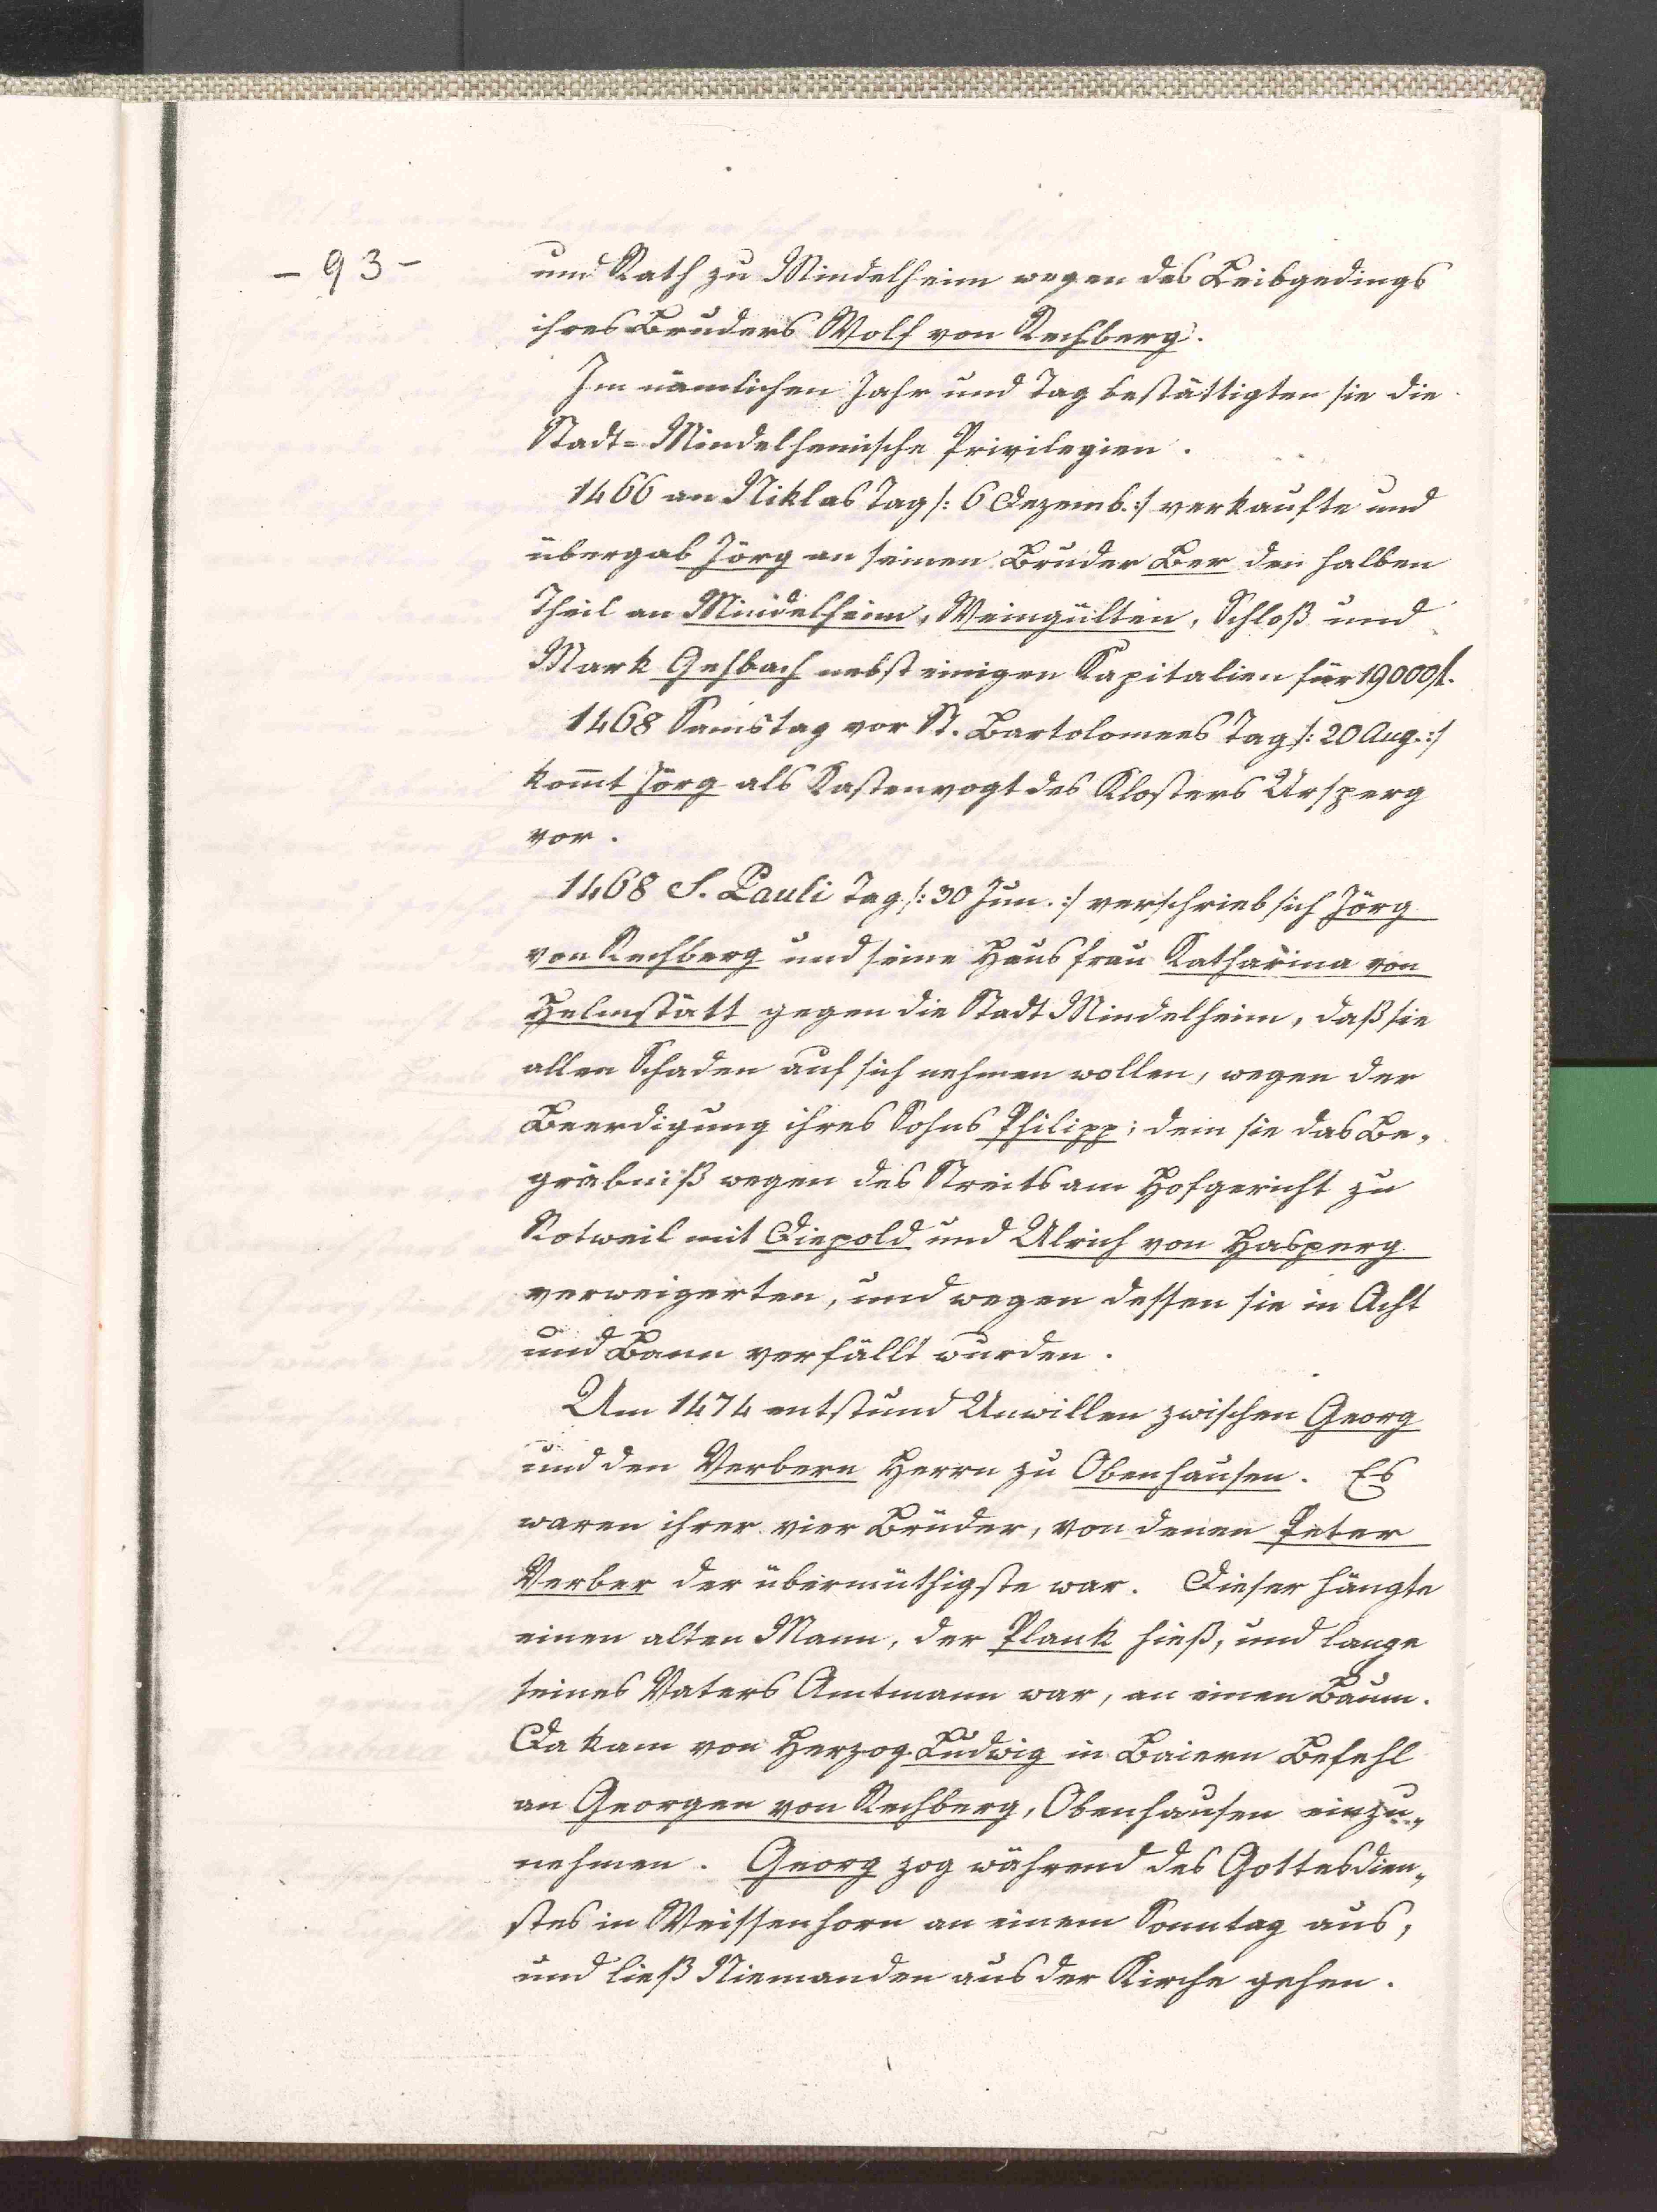 - 93 -
und Rath zu Mindelheim wegen des Leibgedings
ihres Bruders Wolf von Rechberg.
Im nämlichen Jahr und Tag bestättigten sie die
Stadt=Mindelheimische Privilegien.
1466 an Niklas Tag /: 6 Dezemb.:/ verkaufte und
übergab Jörg an seinen Bruder Ber den halben
Theil an Mindelheim, Weingülten, Schloß und
Mark Gesbach nebst einigen Kapitalien für 19000 fl.
1468 Samstag vor St. Bartolomees Tag /: 20 Aug.:/
kom̄t Jörg als Kastenvogt des Klosters Ursperg
vor.
1468 S. Pauli Tag /: 30 Jun. :/ verschrieb sich Jörg
von Rechberg und seine Hausfrau Katharina von
Helmstätt gegen die Stadt Mindelheim, daß sie
allen Schaden auf sich nehmen wollen, wegen der
Beerdigung ihres Sohns Philipp; dem sie das Be„
gräbniß wegen des Streits am Hofgericht zu
Rotweil mit Diepold und Ulrich von Hasperg
verweigerten, und wegen dessen sie in Acht
und Bann verfällt wurden.
Um 1474 entstund Unwillen zwischen Georg
und den Verbern Herrn zu Obenhausen. Es
waren ihrer vier Brüder, von denen Peter
Verber der übermüthigste war. Dieser hängte
einen alten Mann, der Plank hieß, und lange
seines Vaters Amtmann war, an einen Baum.
Da kam von Herzog Ludwig in Baiern Befehl
an Georgen von Rechberg, Obenhausen einzu„
nehmen. Georg zog während des Gottesdien„
stes in Weissenhorn an einem Sonntag aus,
und ließ Niemanden aus der Kirche gehen.